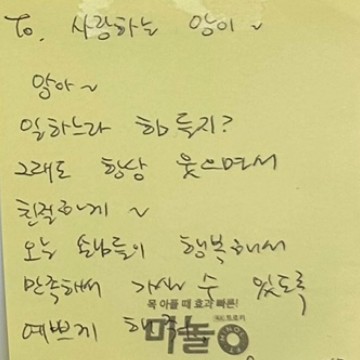 To. 사랑하는 앙이~
앙아~
일하느라 힘들지?
그래도 항상 웃으면서
친절하게~
오늘 손님들이 행복해서
만족해서 가실 수 있도록
목 아플 때 효과 빠른!
미놀
예쁘게 해줘.